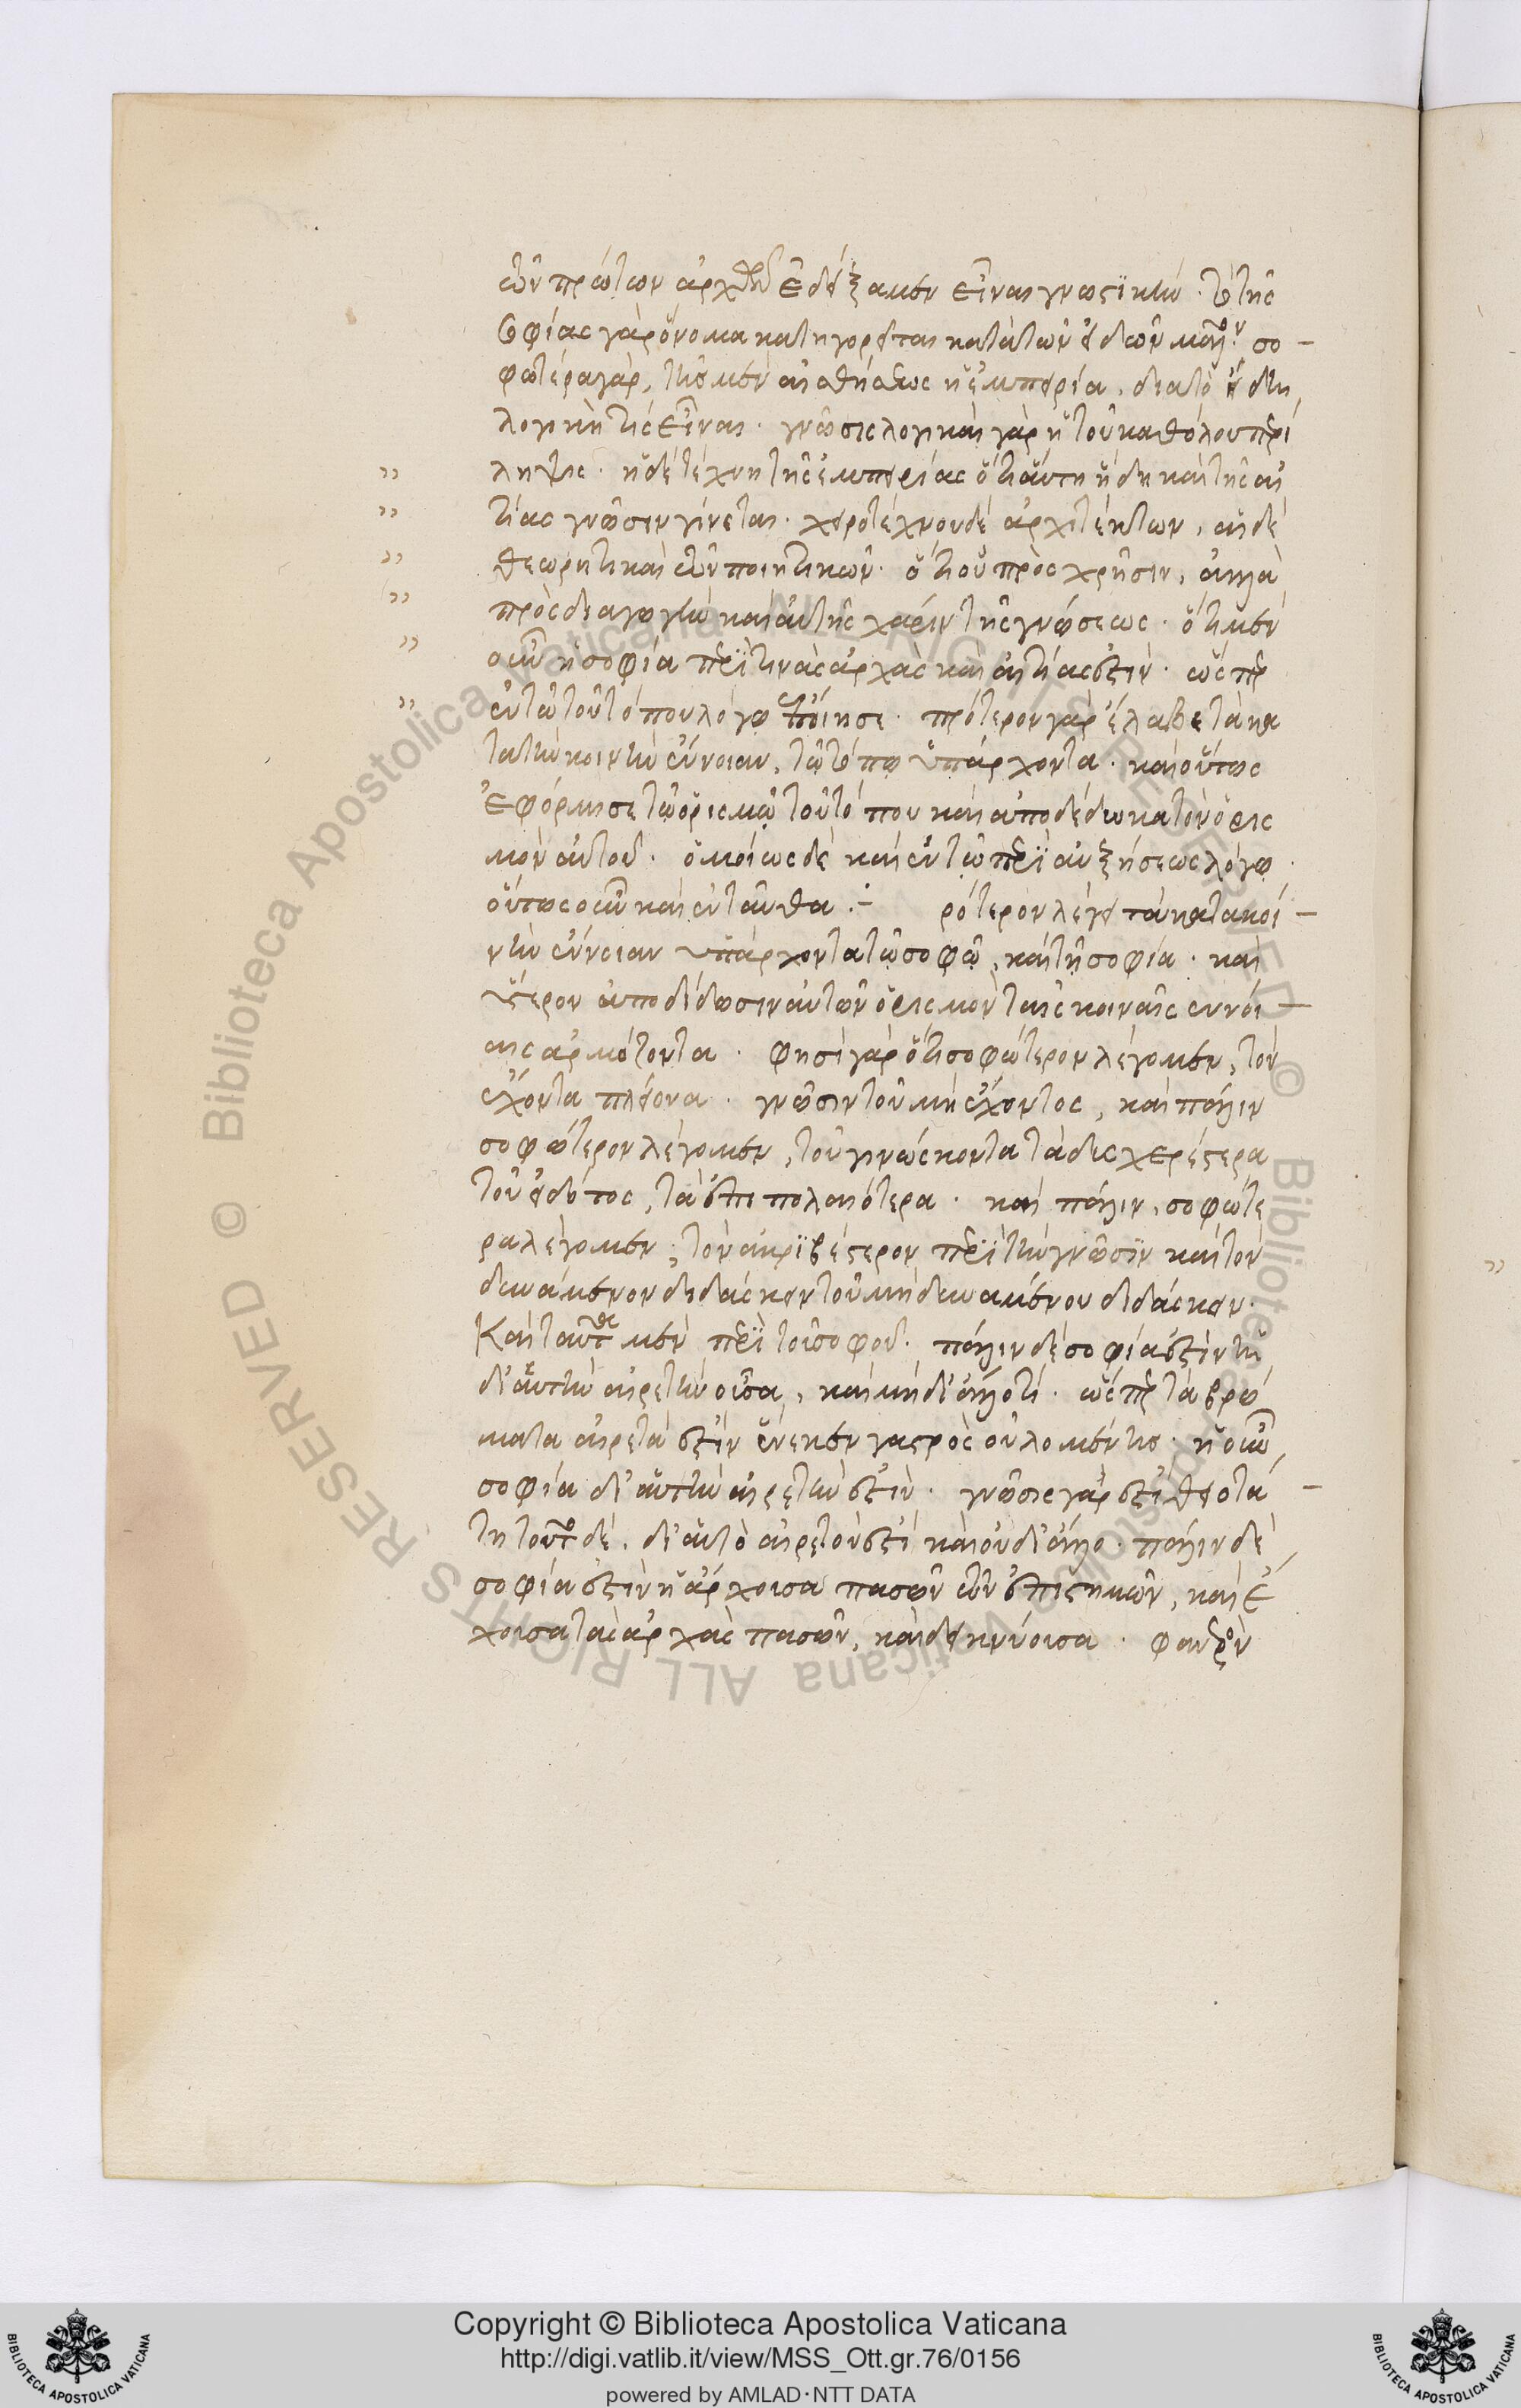 τῶν πρώτων ἀρχῶν ἐδείξαμεν εἶναι γνωστικήν. τὸ τῆς
σοφίας γὰρ ὄνομα κατηγορεῖται κατὰ τῶν εἰδῶν μᾶλλον. σο-
φωτέρα γὰρ, τῆς μὲν αἰσθήσεως ἡ ἐμπειρία, διὰ τὸ ἤδη
λογική τις εἶναι. γνῶσις λογικὴ γὰρ ἡ τοῦ καθόλου περί
ληψις. ἡ δὲ τέχνη τῆς ἐμπειρίας ὅτι αὕτη ἤδη καὶ τῆς αἰ
τίας γνῶσιν γίνεται. χειροτέχνου δὲ ἀρχιτέκτων, αἱ δὲ
θεωρητικαὶ τῶν ποιητικῶν. ὅτι οὐ πρὸς χρῆσιν, ἀλλὰ
πρὸς διαγωγὴν καὶ αὐτῆς χάριν τῆς γνώσεως. ὅτι μὲν
οὖν ἡ σοφία περὶ τινὰς ἀρχὰς καὶ αἰτίας ἐστίν. ὥσπερ
ἐν τῷ τοῦ τόπου λόγῳ ἐποίησε. πρότερον γὰρ ἔλαβε τὰ κα
τὰ τὴν κοινὴν ἔννοιαν, τῷ τόπῳ ὑπάρχοντα. καὶ οὕτως
ἐφόρμησε τῷ ὁρισμῷ τοῦ τόπου καὶ ἀποδέδωκα τὸν ὁρισ
μὸν αὐτοῦ. ὁμοίως δὲ καὶ ἐν τῷ περὶ αὐξήσεως λόγῳ.
οὕτως οὖν καὶ ἐνταῦθα .÷ ρότερον λέγει τὰ κατὰ κοι-
νὴν ἔννοιαν ὑπάρχοντα τῷ σοφῷ, καὶ τῇ σοφίᾳ. καὶ
ὕστερον ἀποδίδωσιν αὐτῶν ὁρισμὸν ταῖς κοιναῖς ἐννοί-
αις ἁρμόζοντα. φησὶ γὰρ ὅτι σοφώτερον λέγομεν, τὸν
ἔχοντα πλείονα. γνῶσιν τοῦ μὴ ἔχοντος, καὶ πάλιν
σοφώτερον λέγομεν, τὸν γινώσκοντα τὰ δυσχερέστερα
τοῦ εἰδότος, τὰ ἐπιπολαιότερα. καὶ πάλιν, σοφώτε
ρα λέγομεν, τὸν ἀκριβέστερον περὶ τὴν γνῶσιν καὶ τὸν
δυνάμενον διδάσκειν τοῦ μὴ δυναμένου διδάσκειν.
Καὶ ταῦτα μὲν περὶ τοῦ σοφοῦ. πάλιν δὲ σοφία ἐστὶν τὴν
δι' αὑτὴν αἱρετὴν οὖσα, καὶ μὴ δι' ἄλλό τι. ὥσπερ τὰ βρώ
ματα αἱρετά ἐστιν ἕνεκεν γαστρὸς οὐλομένης. ἡ οὖν
σοφία δι' αὑτὴν αἱρετὴν ἐστίν. γνῶσις γάρ ἐστι θειοτά-
τη τοῦτο δὲ. δι' αὑτὸ αἱρετόν ἐστι καὶ οὐ δι' ἄλλο. πάλιν δὲ
σοφία ἐστὶν ἡ ἄρχουσα πασῶν τῶν ἐπιστημῶν, καὶ ἔ
χουσα τὰς ἀρχὰς πασῶν, καὶ δεικνύουσα. φανερὸν
Copyright © Biblioteca Apostolica Vaticana
http://digi.vatlib.it/view/MSS_Ott.gr.76/0156
powered by AMLAD·NTT DATA